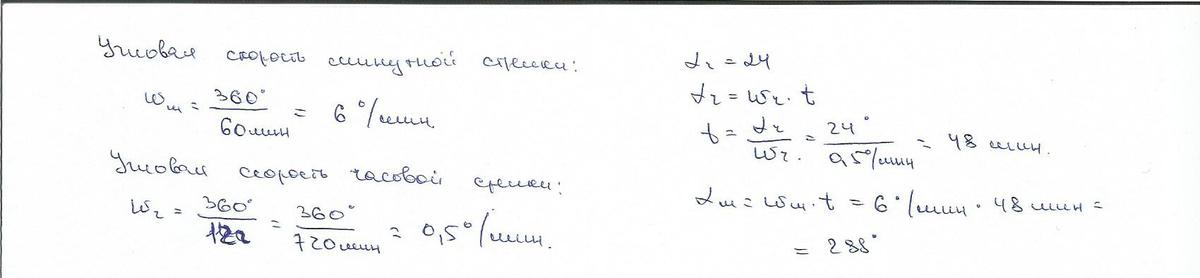 Угловая скорость минутной стрелки:
ωм = 360° / 60 мин = 6 °/мин.
Угловая скорость часовой стрелки:
ωч = 360° / 12ч = 360° / 720 мин = 0,5°/мин.
αч = 24
αч = ωч · t
t = αч / ωч = 24° / 0,5°/мин = 48 мин.
αм = ωм · t = 6 °/мин · 48 мин =
= 288°